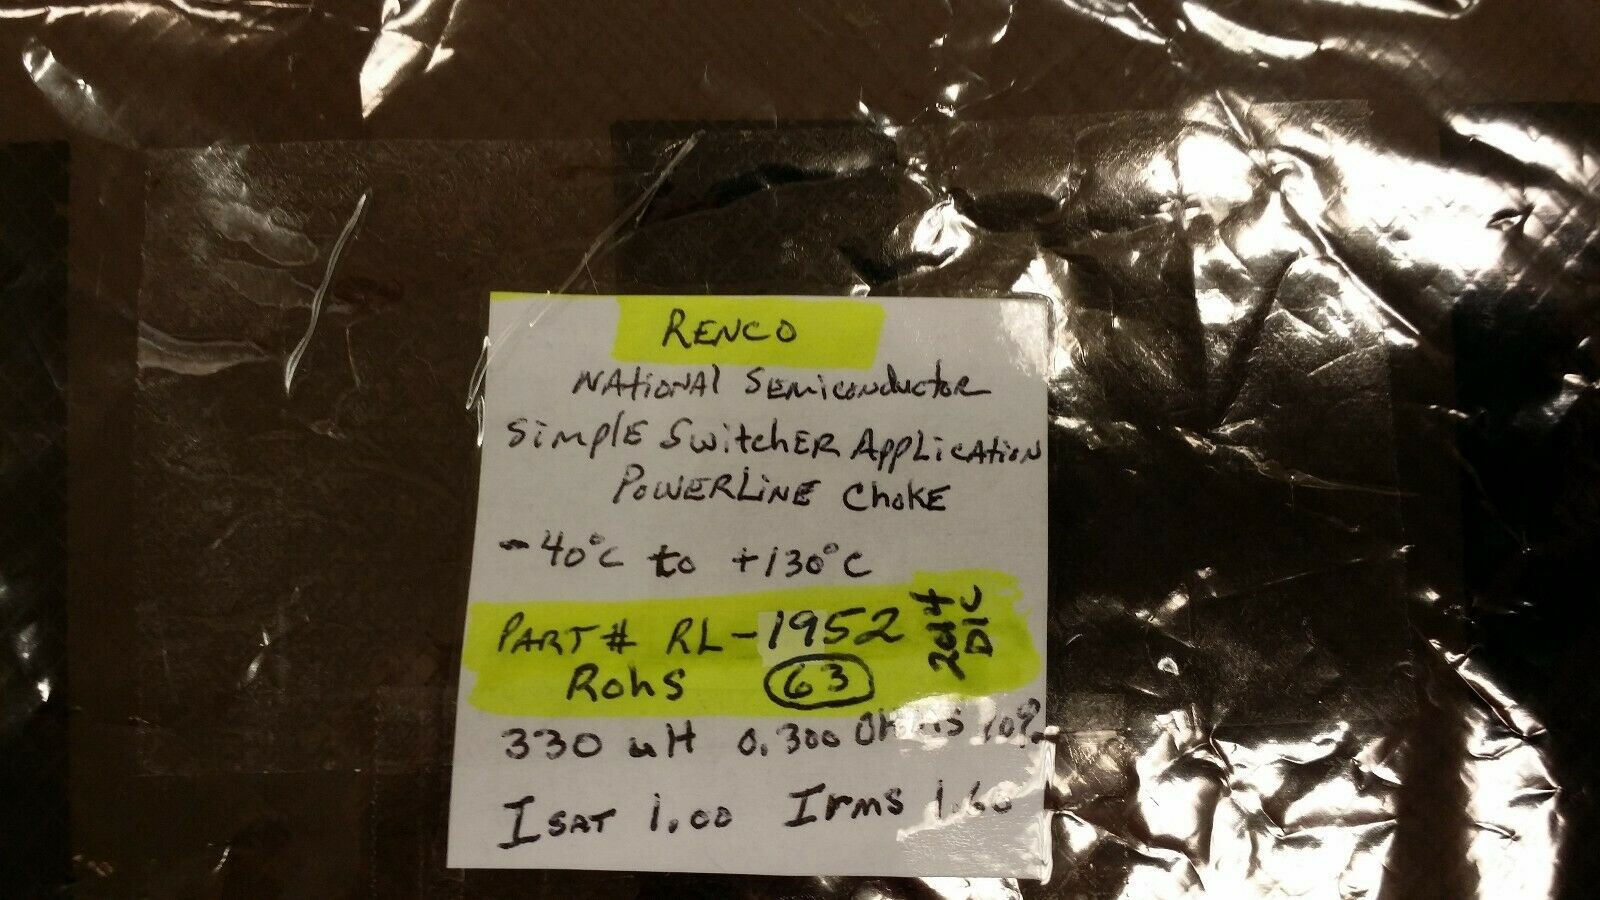 RENCO
NAtioNAl SEMiconductor
SimplE SwitchER AppLicAtion
PowERLiNE ChoKE
-40°C to +130°C
PART # RL-1952
2014
D/C
RoHS 63
330 uH 0.300 OHMS 10%
I SAT 1.00 Irms 1.60